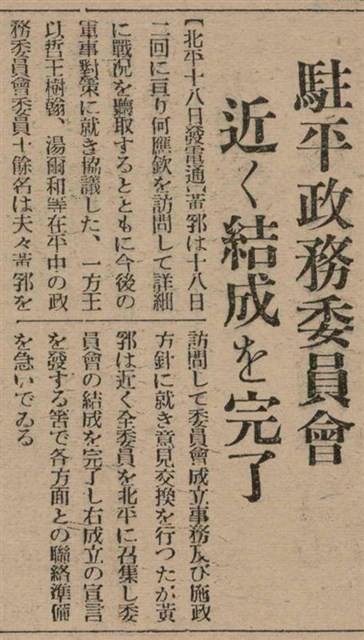 駐平政務委員會
近く結成を完了
【北平十八日發電通】黃郛は十八日
二回に亘り何應欽を訪問して詳細
に戰況を聽取するとともに今後の
軍事對策に就き協議した、一方王
以哲王樹翰、湯爾和等在平中の政
務委員會委員十餘名は夫々黃郛を
訪問して委員會成立事務及び施政
方針に就き意見交換を行つたが黃
郛は近く全委員を北平に召集し委
員會の結成を完了し右成立の宣言
を發する筈で各方面との聯絡準備
を急いでゐる